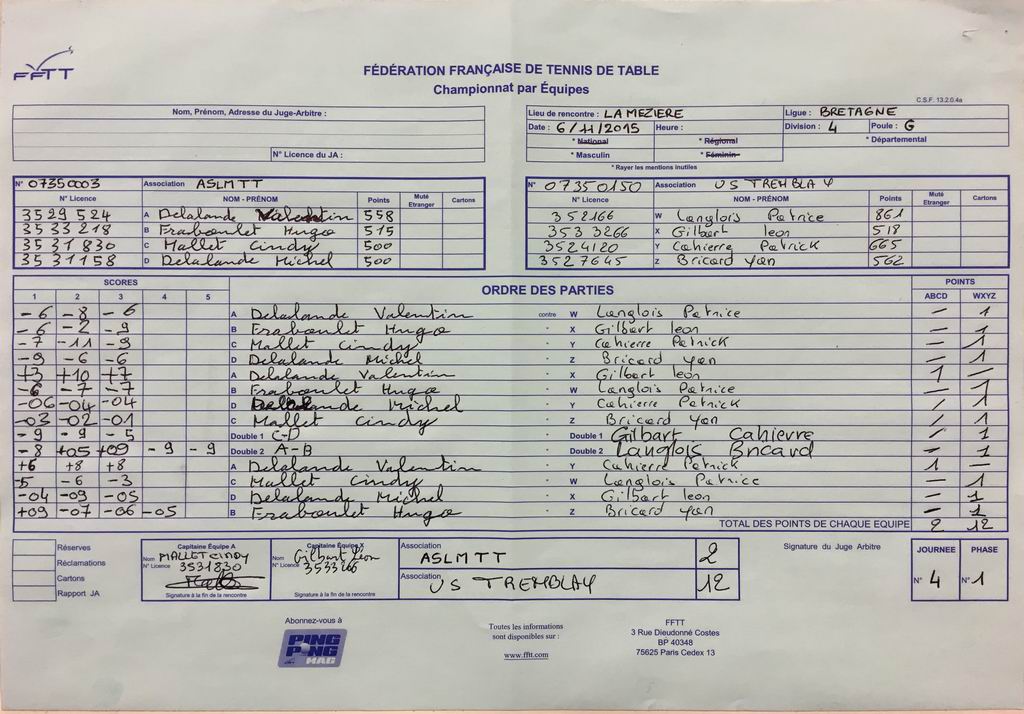 FFTT
FÉDÉRATION FRANÇAISE DE TENNIS DE TABLE
Championnat par Équipes
C.S.F. 13.2.0.4a
Nom, Prénom, Adresse du Juge-Arbitre :
N° Licence du JA :
Lieu de rencontre : LA MEZIERE Ligue : BRETAGNE
Date : 6/11/2015 Heure : Division : 4 Poule : G
* National * Régional * Départemental
* Masculin * Féminin
* Rayer les mentions inutiles
N° 07350003 Association ASLMTT
N° Licence NOM - PRÉNOM Points Muté Etranger Cartons
3529 524 A Delalande Valentin 558
3533 218 B Fraboulet Hugo 515
3531 830 C Mallet Cindy 500
3531158 D Delalande Michel 500
N° 07350150 Association US TREMBLAY
N° Licence NOM - PRÉNOM Points Muté Etranger Cartons
352166 W Langlois Patrice 861
353 3266 X Gilbert leon 518
3524120 Y Cahierre Patrick 665
3527645 Z Bricard Yan 562
SCORES ORDRE DES PARTIES POINTS
1 2 3 4 5 ABCD WXYZ
-6 -8 -6 A Delalande Valentin contre W Langlois Patrice - 1
-6 -2 -9 B Fraboulet Hugo - X Gilbert leon - 1
-7 -11 -9 C Mallet Cindy - Y Cahierre Patrick - 1
-9 -6 -6 D Delalande Michel - Z Bricard Yan - 1
+3 +10 +7 A Delalande Valentin - X Gilbert leon 1 -
-6 -7 -7 B Fraboulet Hugo - W Langlois Patrice - 1
-06 -04 -04 D Delalande Michel - Y Cahierre Patrick / 1
-03 -02 -01 C Mallet Cindy - Z Bricard Yan / 1
-9 -9 -5 Double 1 C-D - Double 1 Gilbart Cahievre / 1
-8 +05 +09 -9 -9 Double 2 A-B - Double 2 Langlois Bricard - 1
+6 +8 +8 A Delalande Valentin - Y Cahierre Patrick 1 -
-5 -6 -3 C Mallet Cindy - W Langlois Patrice - 1
-04 -09 -05 D Delalande Michel - X Gilbert leon - 1
+09 -07 -06 -05 B Fraboulet Hugo - Z Bricard Yan - 1
TOTAL DES POINTS DE CHAQUE EQUIPE 2 12
Réserves
Réclamations
Cartons
Rapport JA
Capitaine Équipe A
Nom MALLET CINDY
N° Licence 3531830
Signature à la fin de la rencontre
Capitaine Équipe X
Nom Gilbert léon
N° Licence 3533266
Signature à la fin de la rencontre
Association ASLMTT 2
Association US TREMBLAY 12
Signature du Juge Arbitre
JOURNEE PHASE
N° 4 N° 1
Abonnez-vous à
PING PONG MAG
Toutes les informations
sont disponibles sur :
www.fftt.com
FFTT
3 Rue Dieudonné Costes
BP 40348
75625 Paris Cedex 13